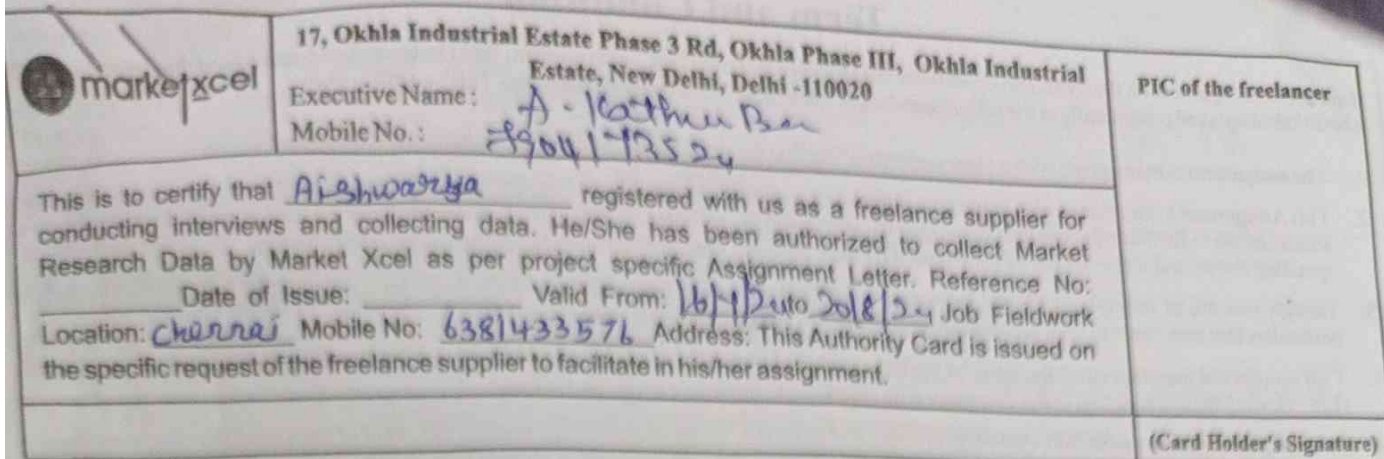 marketxcel
17, Okhla Industrial Estate Phase 3 Rd, Okhla Phase III, Okhla Industrial
Estate, New Delhi, Delhi -110020
Executive Name : A -
Mobile No. : 8904173524
PIC of the freelancer
This is to certify that Aishwarya registered with us as a freelance supplier for
conducting interviews and collecting data. He/She has been authorized to collect Market
Research Data by Market Xcel as per project specific Assignment Letter. Reference No:
Date of Issue: Valid From: 16/4/24 to 20/8/24 Job Fieldwork
Location: Chennai Mobile No: 6381433576 Address: This Authority Card is issued on
the specific request of the freelance supplier to facilitate in his/her assignment.
(Card Holder's Signature)